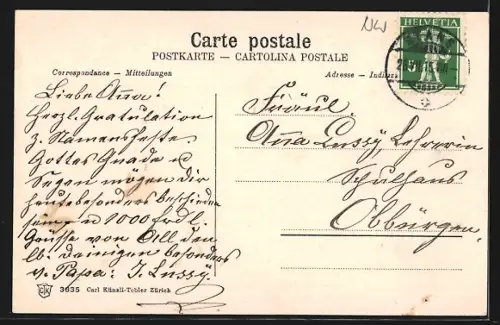 NW
Carte postale
POSTKARTE – CARTOLINA POSTALE
Correspondance – Mitteilungen
Adresse
HELVETIA
Liebe Anna!
Herzl. Gratulation
z. Namensfeste.
Gottes Gnade u
Segen mögen dir
heute besonders beschieden
sein u 1000 frdl.
Grüsse von All den
lb. deinigen besonders
v. Papa: J. Lussy.
Fräul.
Anna Lussy, Lehrerin
Schulhaus
Obbürgen.
CK 3035 Carl Künzli-Tobler Zürich